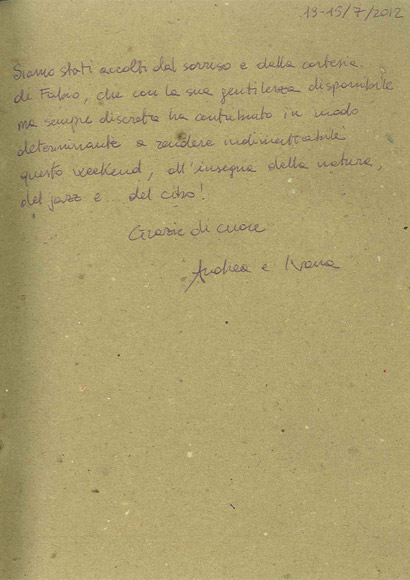 13-15/7/2012
Siamo stati accolti dal sorriso e dalla cortesia
di Fabio, che con la sua gentilezza disponibile
ma sempre discreta ha contribuito in modo
determinante a rendere indimenticabile
questo weekend, all'insegna della natura,
del jazz e... del cibo!
Grazie di cuore
Andrea e Ivana